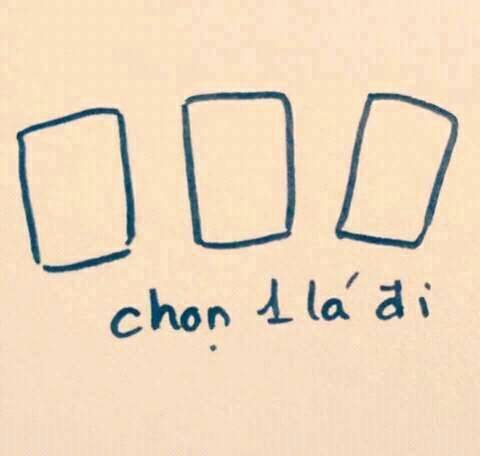 chọn 1 lá đi